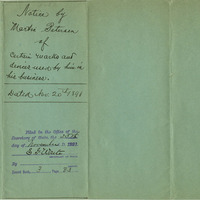 Notice by
Martin Petersen
of
Certain marks and
devices used by him in
his business.
Dated, Nov. 20th 1896
Filed in the Office of the
Secretary of State, the
day of November
Book 3 Page 28